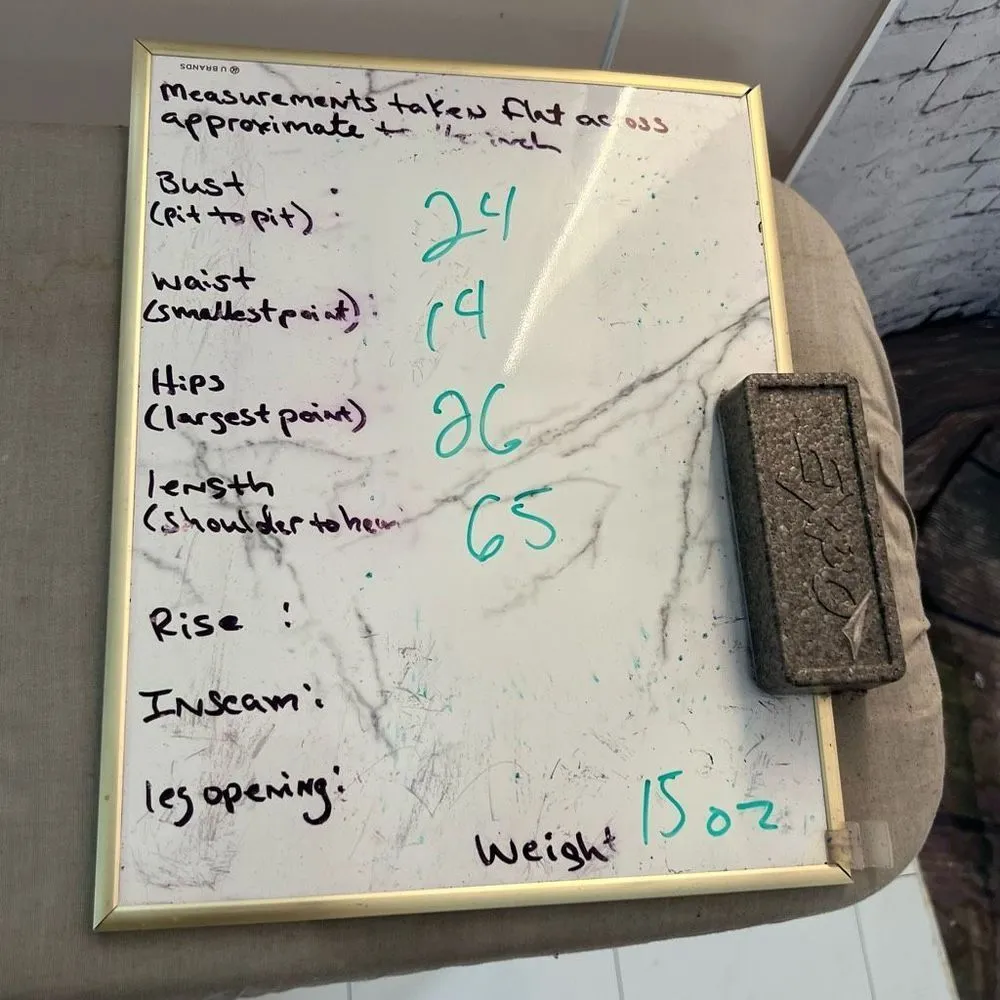 U BRANDS
Measurements taken flat across
approximate to 1/2 inch
Bust :
(pit to pit) 24
waist
(smallest point): 14
Hips
(largest point) 26
length
(shoulder to hem 65
Rise :
Inseam:
leg opening:
Weight 15 oz